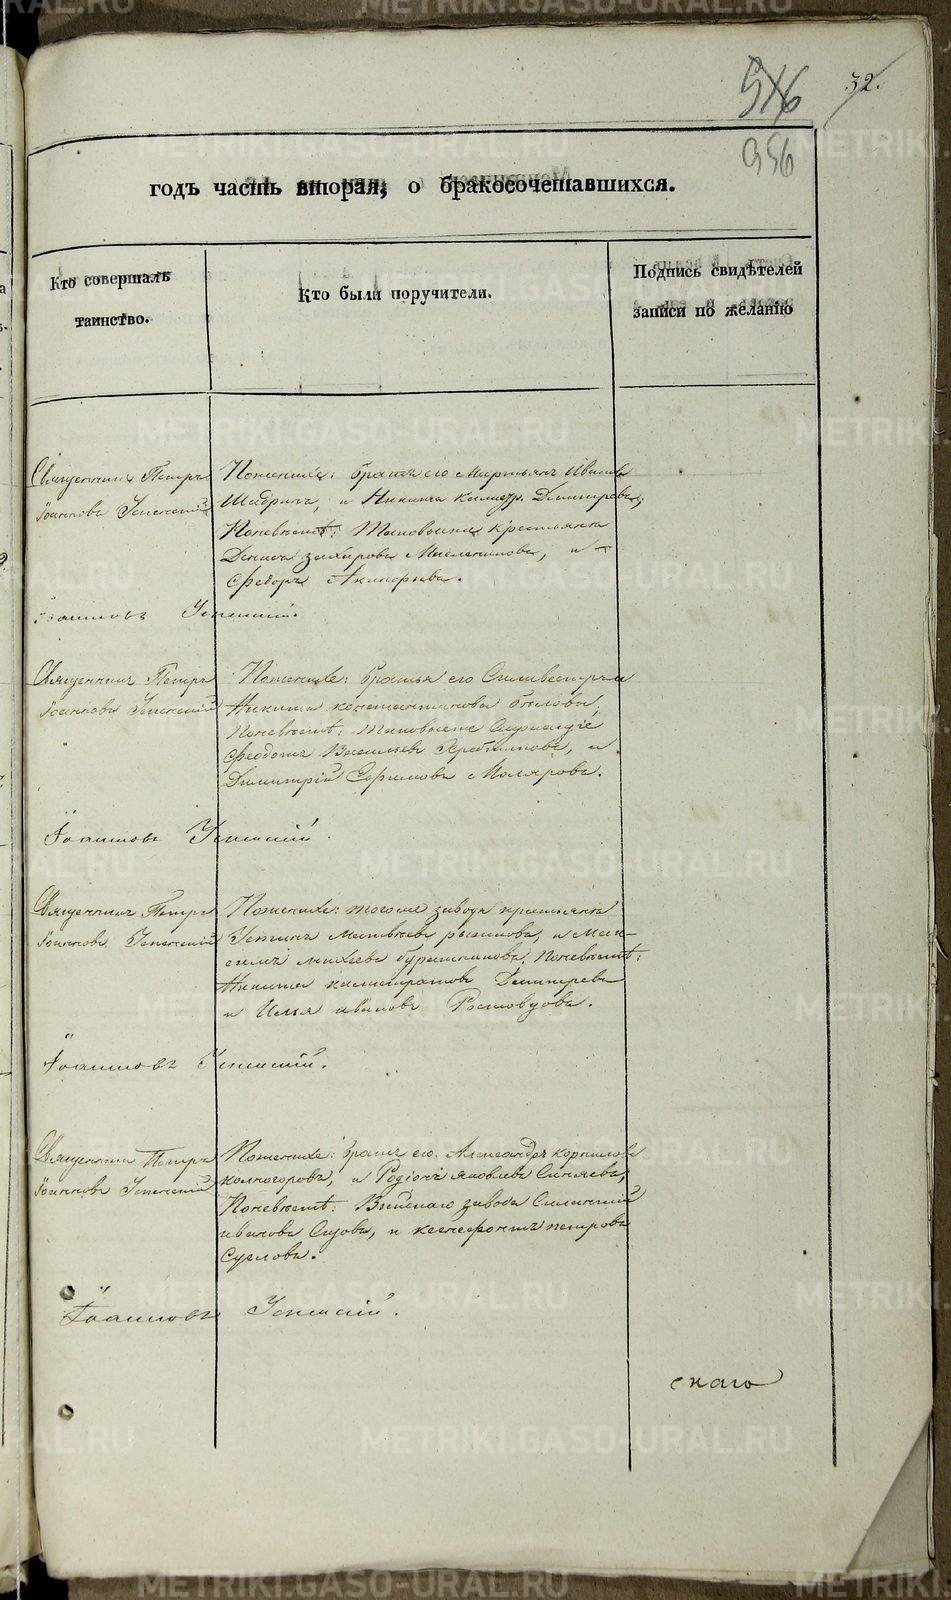 516
32.
956
годъ часть вторая, о бракосочетавшихся.
Кто совершалъ
таинство.
Кто были поручители.
Подпись свидѣтелей
записи по желанію
Священникъ Петръ
Іоанновъ Успенскій
Поженихѣ: братья его Мартьянъ Ивановъ
Шабринъ, и Никита Димитревъ,
Поневѣстѣ: крестьяне
Денисъ Мясниковъ, и
Федоръ
Іоанновъ Успенскій.
Священникъ Петръ
Іоанновъ Успенскій
Поженихѣ: братья его Силивестръ и
Никита константиновы Бѣловы,
Поневѣстѣ:
Феодотъ Васильевъ и
Димитрій Ефимовъ Моляровъ.
Іоанновъ Успенскій.
Священникъ Петръ
Іоанновъ Успенскій
Поженихѣ: тогоже завода крестьяне
Устинъ Матвѣевъ и Мак-
симъ михеевъ Поневѣстѣ:
Никита калистратовъ Димитревъ
и Илья ивановъ Ростовцовъ.
Іоанновъ Успенскій.
Священникъ Петръ
Іоанновъ Успенскій
Поженихѣ: братъ его Александръ корниловъ
колногоровъ, и Родіонъ яковлевъ Синяевъ,
Поневѣстѣ: Выйскаго завода
ивановъ и ксенофонтъ петровъ
Сусловъ.
Іоанновъ Успенскій.
скаго
METRIKI.GASO-URAL.RU